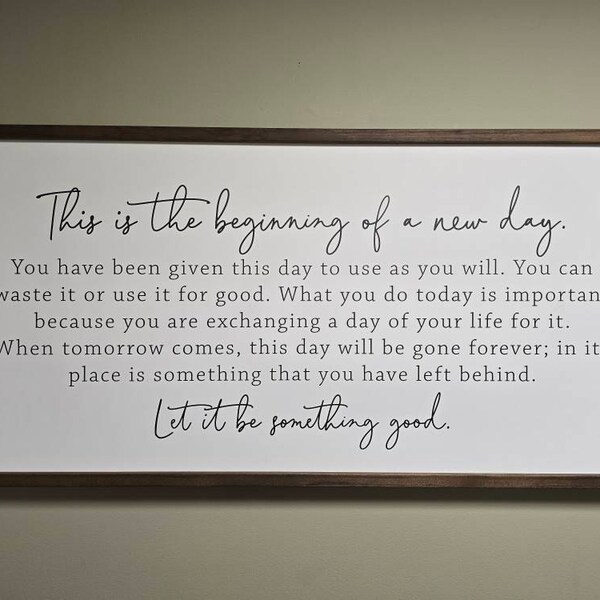 This is the beginning of a new day.
You have been given this day to use as you will. You can
waste it or use it for good. What you do today is importan
because you are exchanging a day of your life for it.
When tomorrow comes, this day will be gone forever; in it
place is something that you have left behind.
Let it be something good.